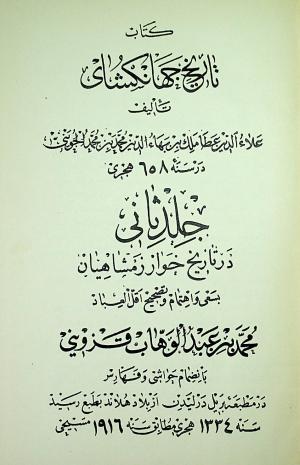 کتاب
تاریخ جهانکشای
تألیف
علاء الدین عطا ملک بن بهاء الدین محمد بن محمد الجوینی
در سنه ۶۵۸ هجری
جلد ثانی
در تاریخ خوارزمشاهیان
بسعی و اهتمام و تصحیح اقل العباد
محمد بن عبد الوهاب قزوینی
بانضمام حواشی و فهارس
در مطبعهٔ بریل در لیدن از بلاد هلاند بطبع رسید
سنه ۱۳۳۴ هجری مطابق سنه ۱۹۱۶ مسیحی